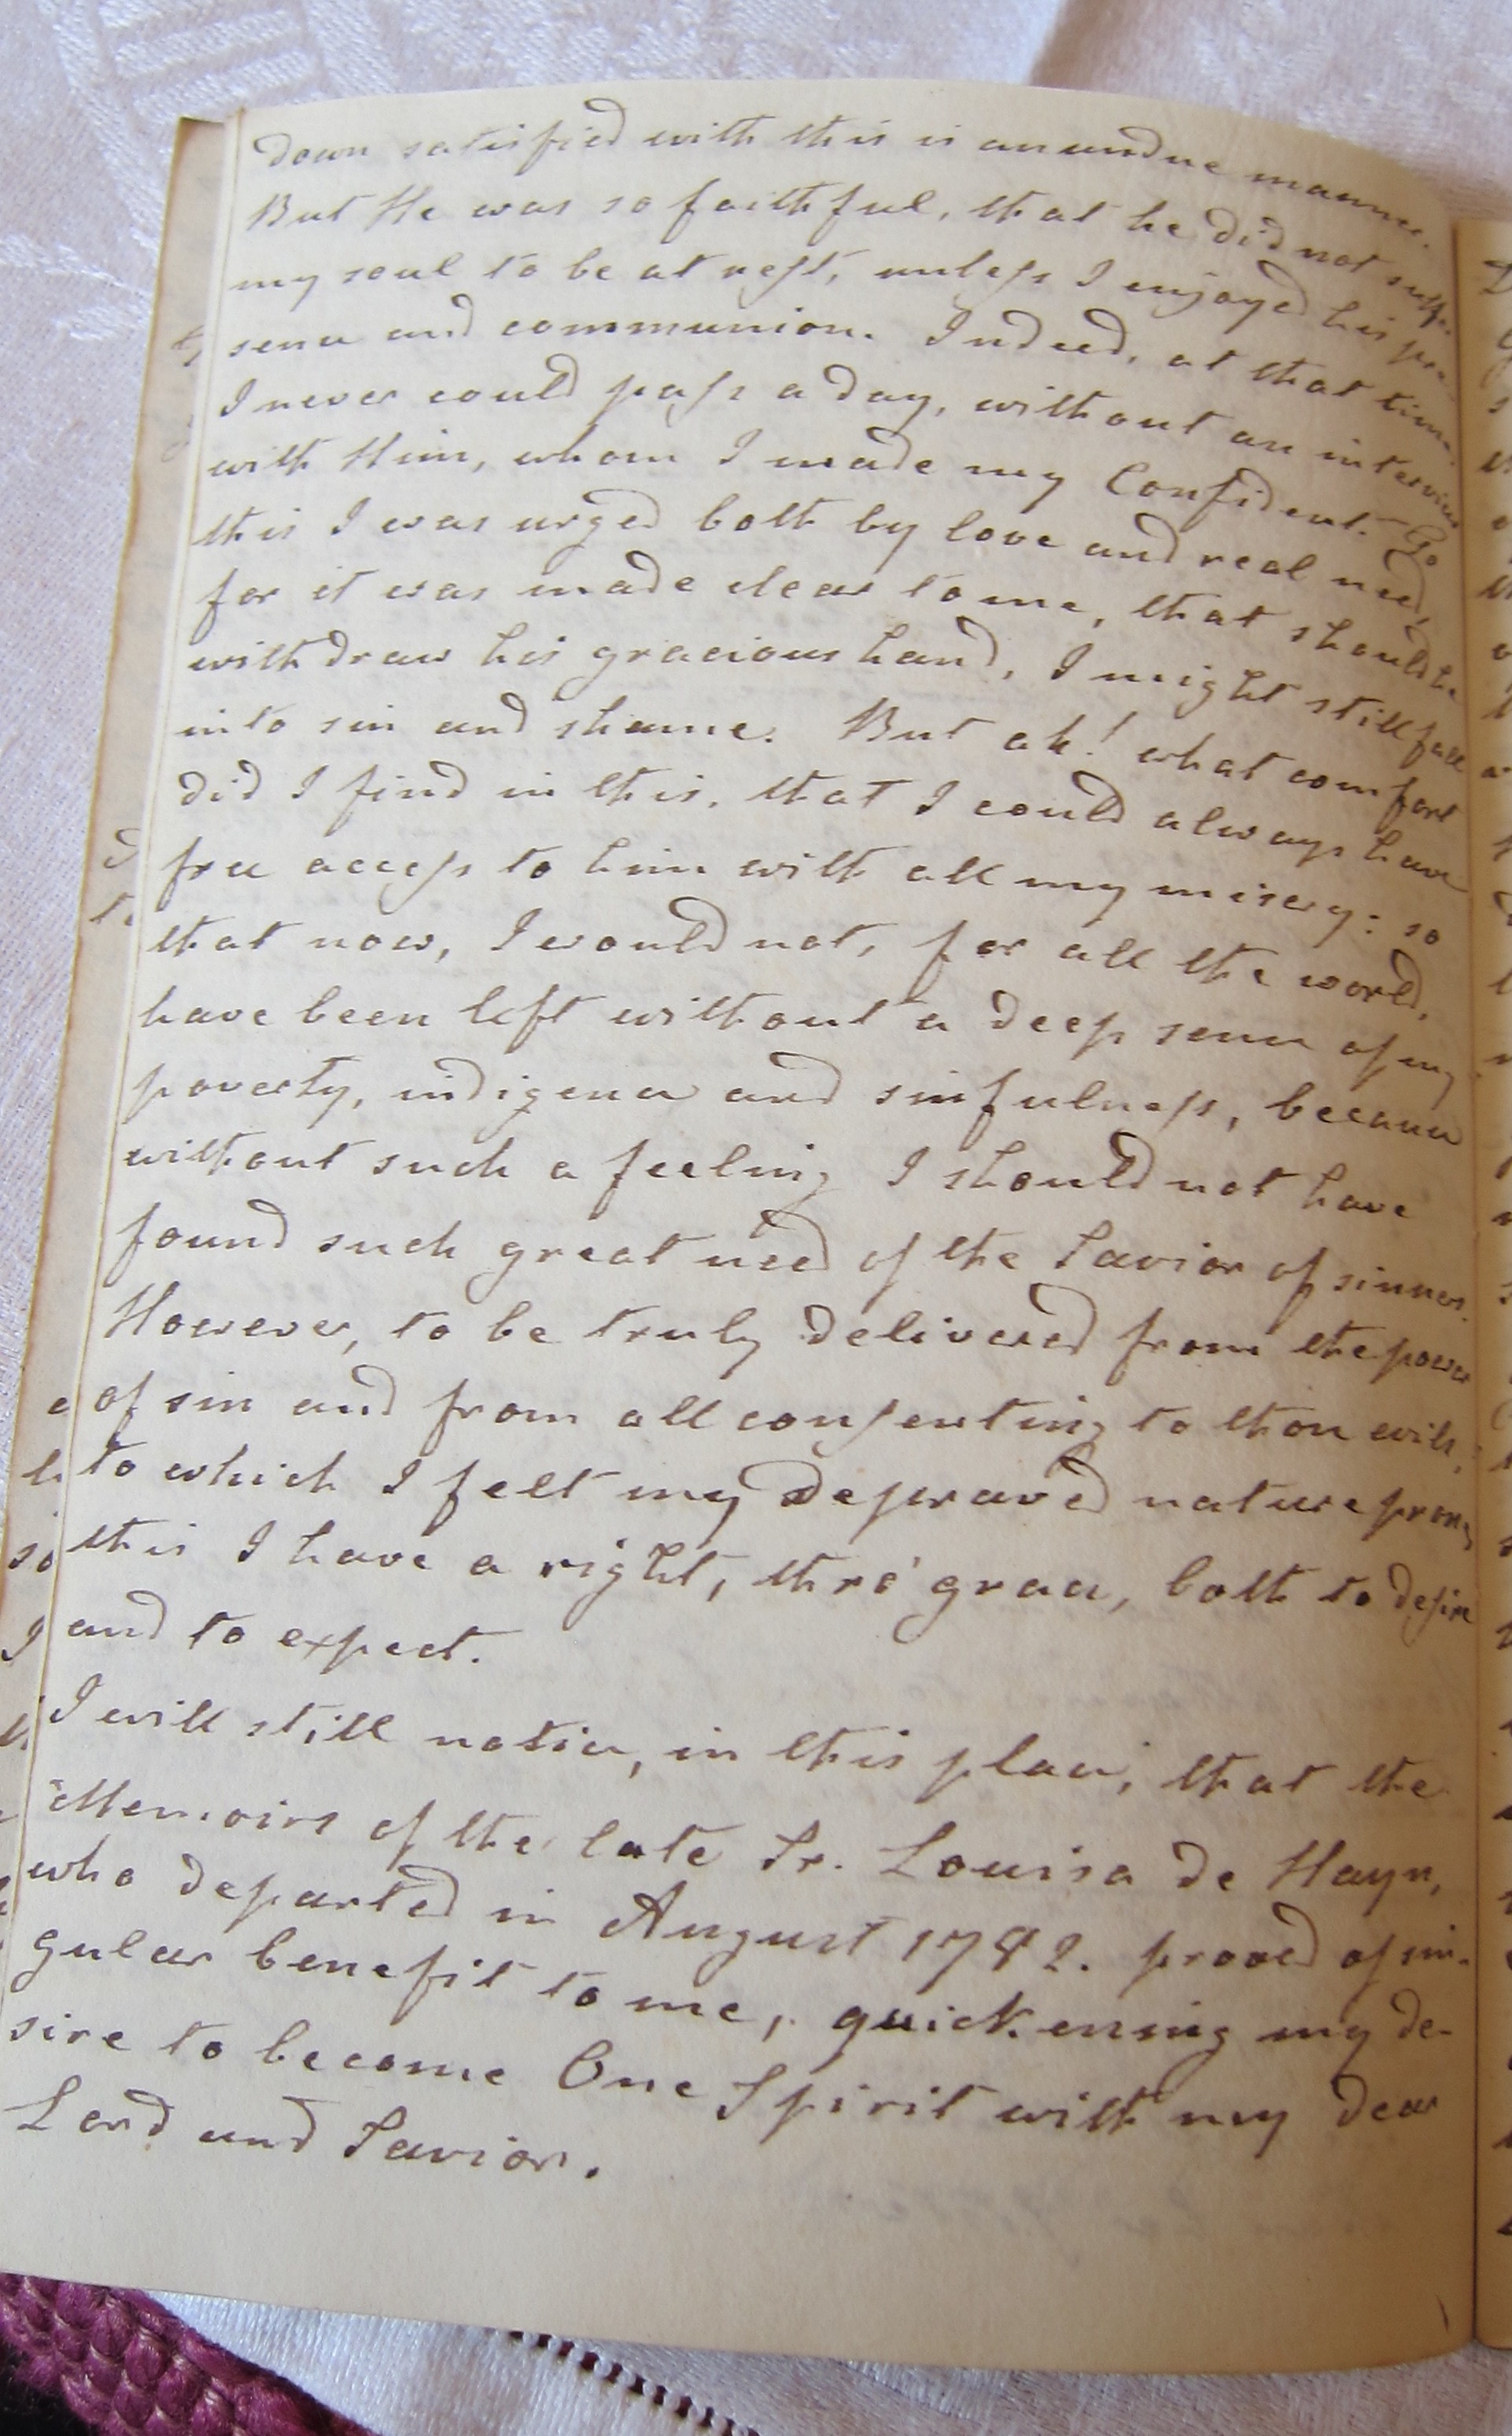 down satisfied with this in an undue manner.
But He was so faithful, that he did not suffer
my soul to be at rest, unless I enjoyed his pre-
sence and communion. Indeed, at that time
I never could pass a day, without an interview
with Him, whom I made my Confident. To
this I was urged both by love and real need,
for it was made clear to me, that should he
withdraw his gracious hand, I might still fall
into sin and shame. But ah! what comfort
did I find in this, that I could always have
free access to him with all my misery: so
that now, I would not, for all the world,
have been left without a deep sense of my
poverty, indigence and sinfulness, because
without such a feeling I should not have
found such great need of the Savior of sinners.
However, to be truly delivered from the power
of sin and from all consenting to those evils,
to which I felt my depraved nature prone,
this I have a right, thro' grace, both to desire
and to expect.
I will still notice, in this place, that the
Memoirs of the late Sr. Louisa de Hayn,
who departed in August 1782. proved of sin-
gular benefit to me, quickening my de-
sire to become One Spirit with my dear
Lord and Savior.